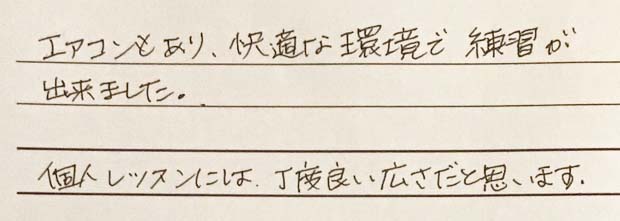 エアコンもあり、快適な環境で練習が
出来ました。
個人レッスンには、丁度良い広さだと思います。